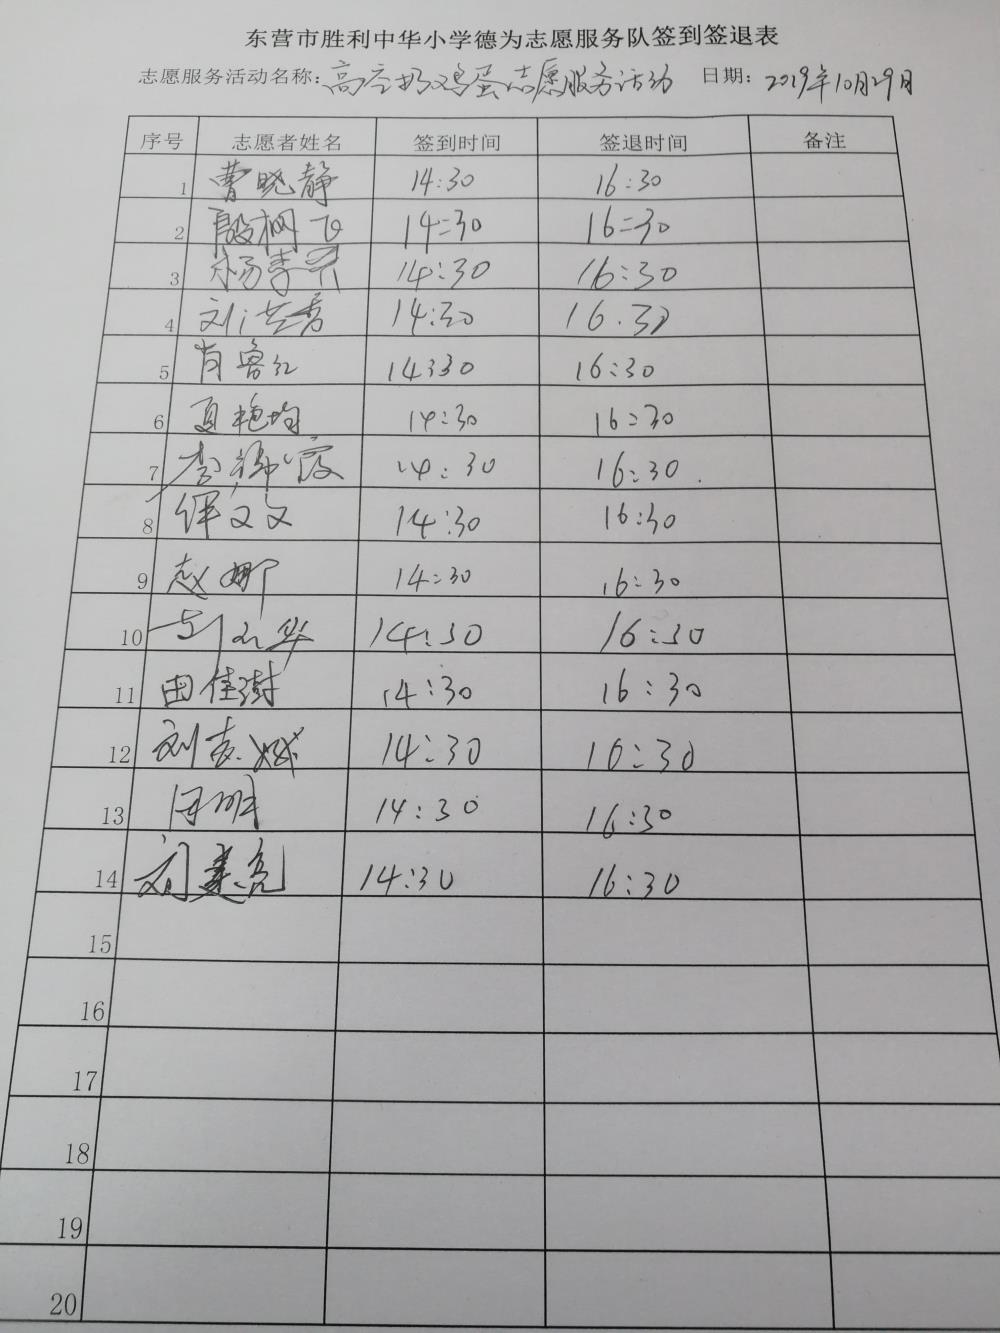 东营市胜利中华小学德为志愿服务队签到签退表
志愿服务活动名称:高空抛鸡蛋志愿服务活动 日期: 2019年10月29日
序号 志愿者姓名 签到时间 签退时间 备注
1 曹晓静 14:30 16:30
2 殷桐飞 14:30 16:30
3 杨李 14:30 16:30
4 刘洪香 14:30 16.30
5 肖鲁红 14:30 16:30
6 夏艳均 14:30 16:30
7 李 霞 14:30 16:30
8 绎文文 14:30 16:30
9 赵娜 14:30 16:30
10 华 14:30 16:30
11 田佳澍 14:30 16:30
12 刘志斌 14:30 16:30
13 明 14:30 16:30
14 刘建亮 14:30 16:30
15
16
17
18
19
20